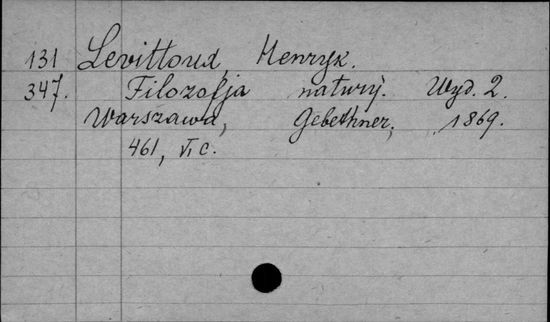 131 Levittoux, Henryk.
347. Filozofja natury. Wyd. 2.
Warszawa, Gebethner, 1869.
461, VI c.